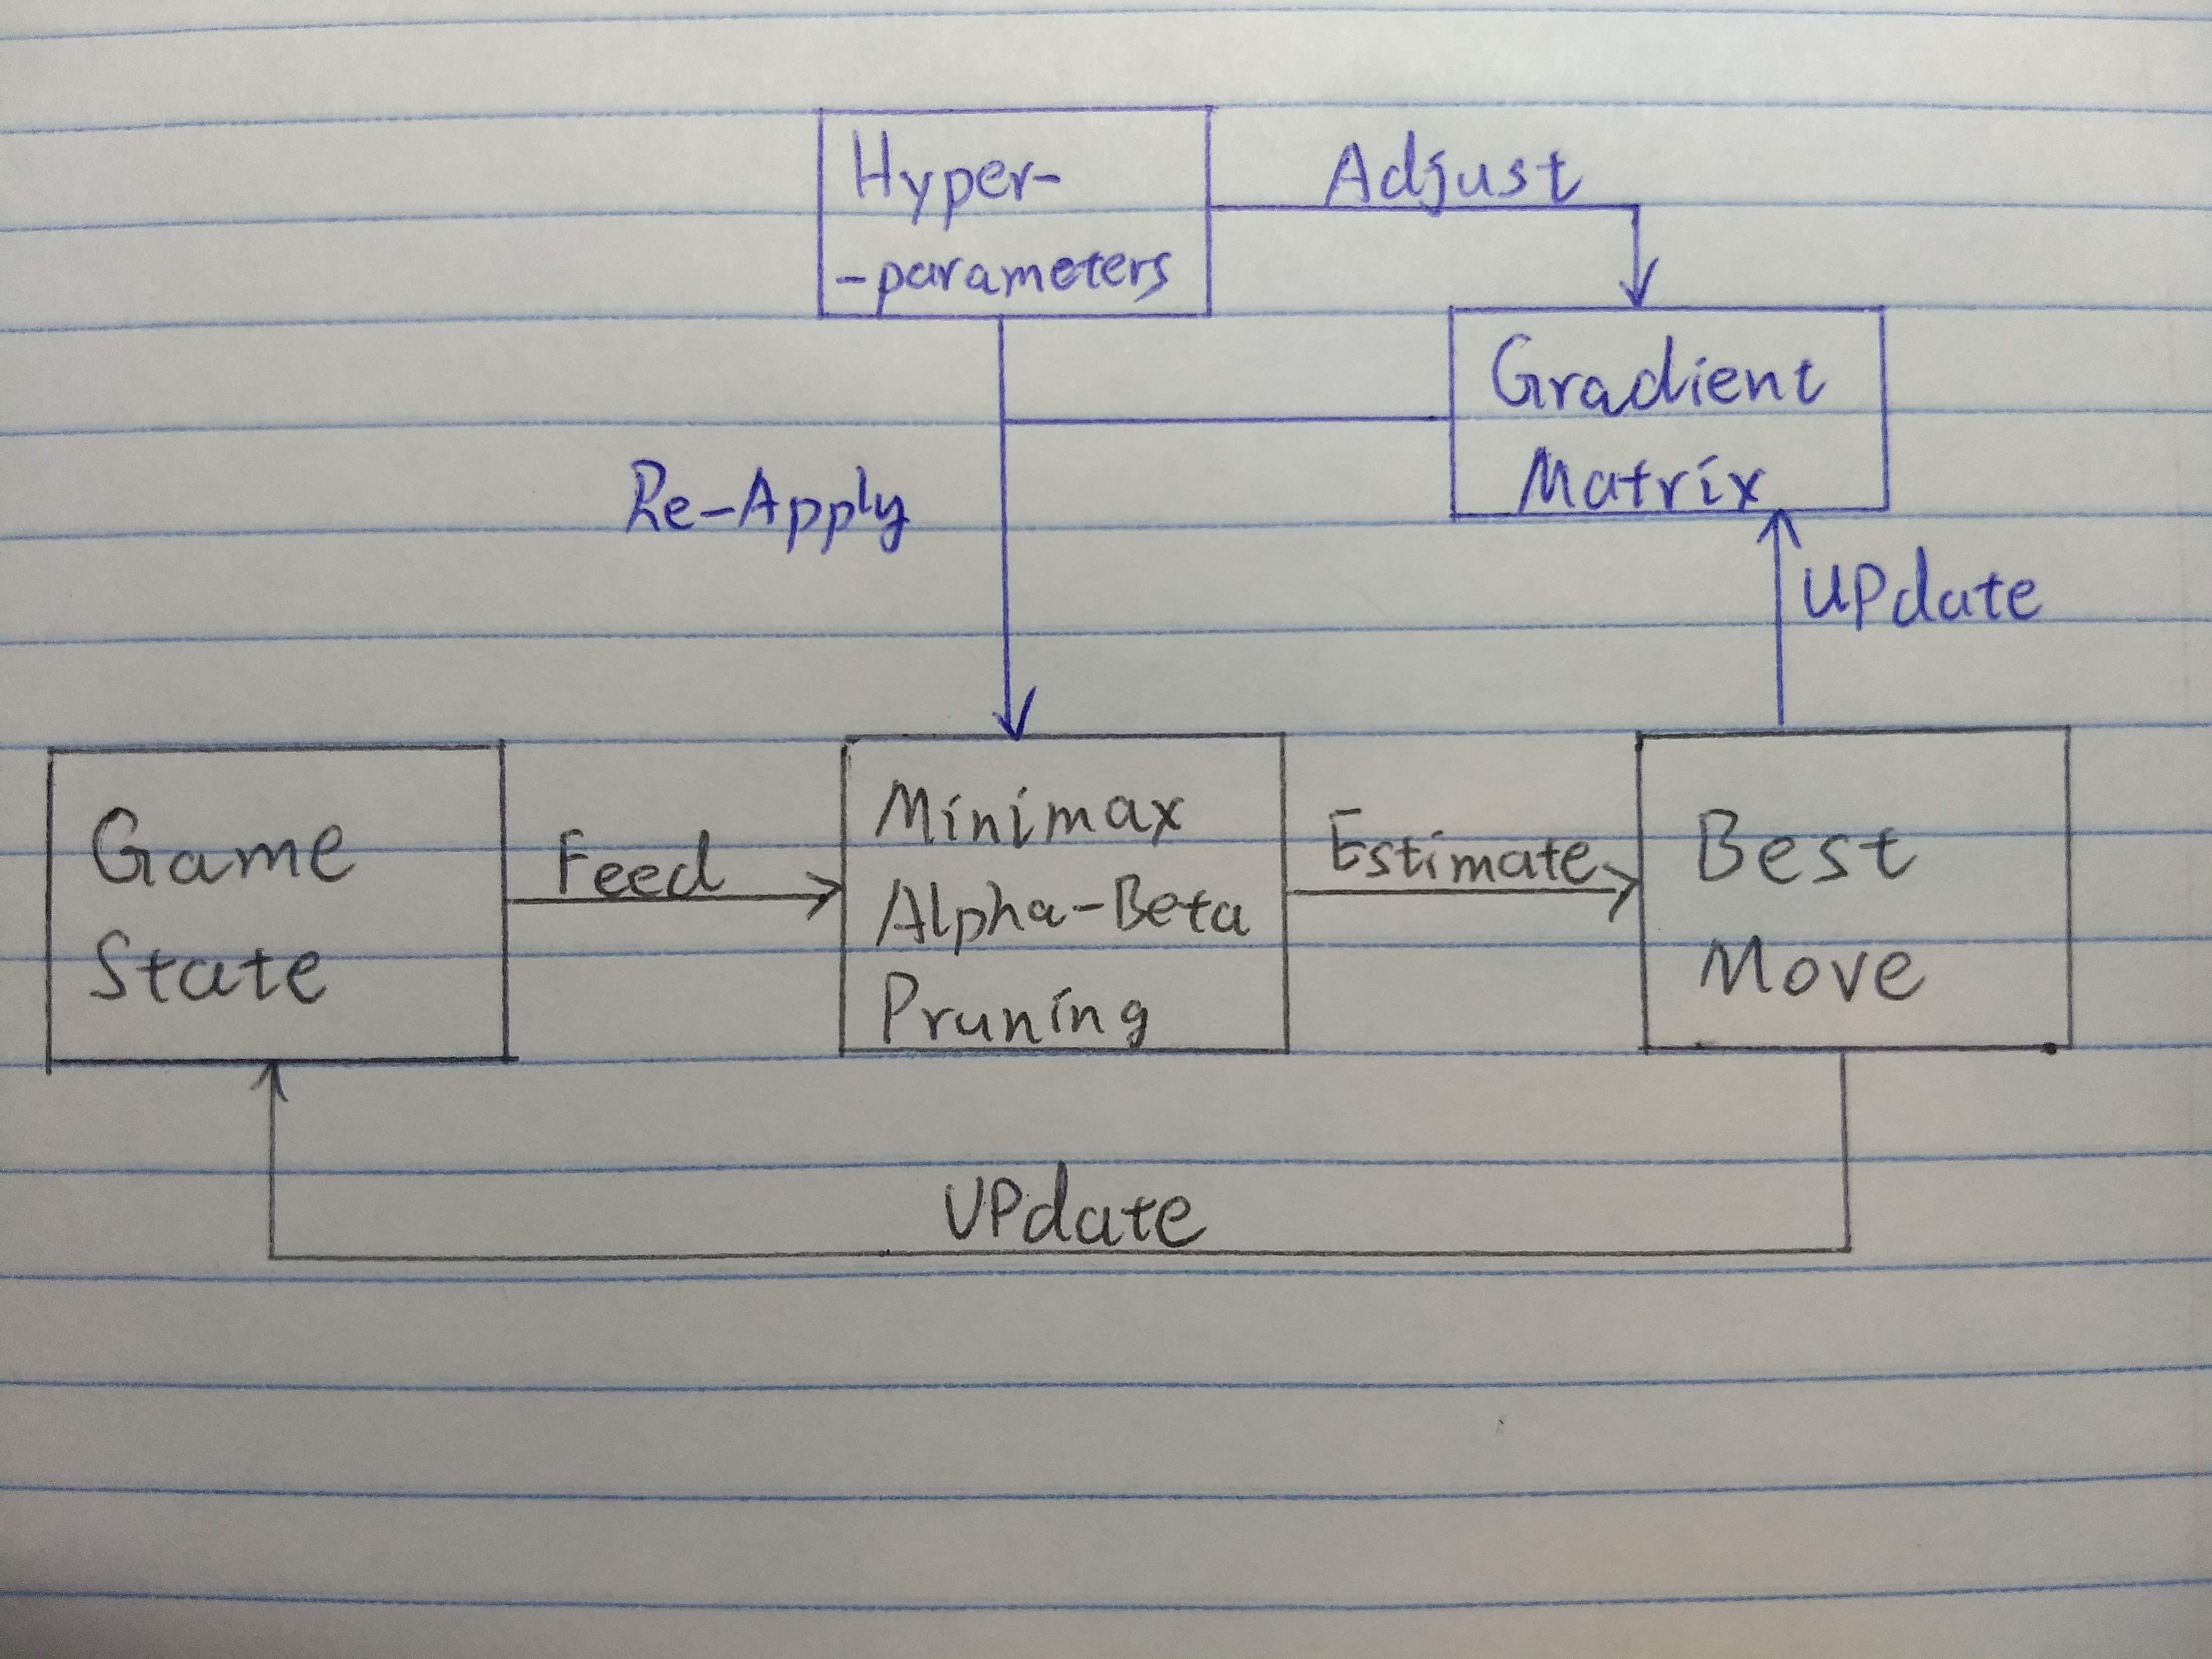 Hyper-
-parameters
Adjust
Gradient
Matrix
Re-Apply
UPdate
Game
State
Feed
Minimax
Alpha-Beta
Pruning
Estimate
Best
Move
UPdate